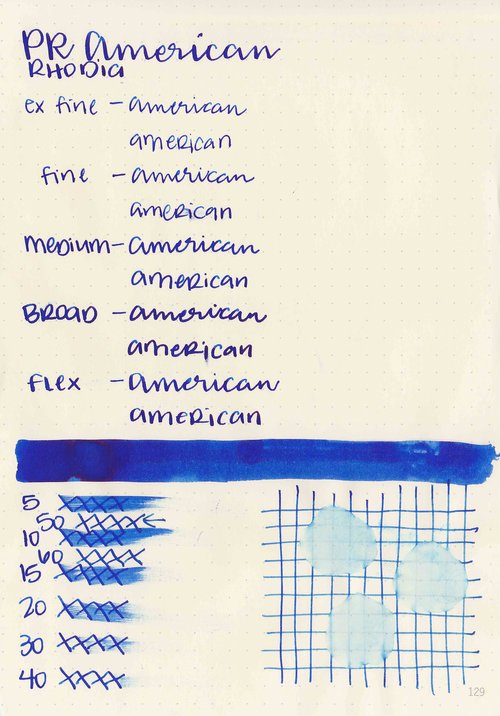 PR American
RHODIA
ex fine - american
american
fine - american
american
medium - american
american
BROAD - american
american
flex - american
american
5 XXXX
50 XXXX
10 XXXX
60 XXXX
15 XXXX
20 XXXX
30 XXXX
40 XXXX
129